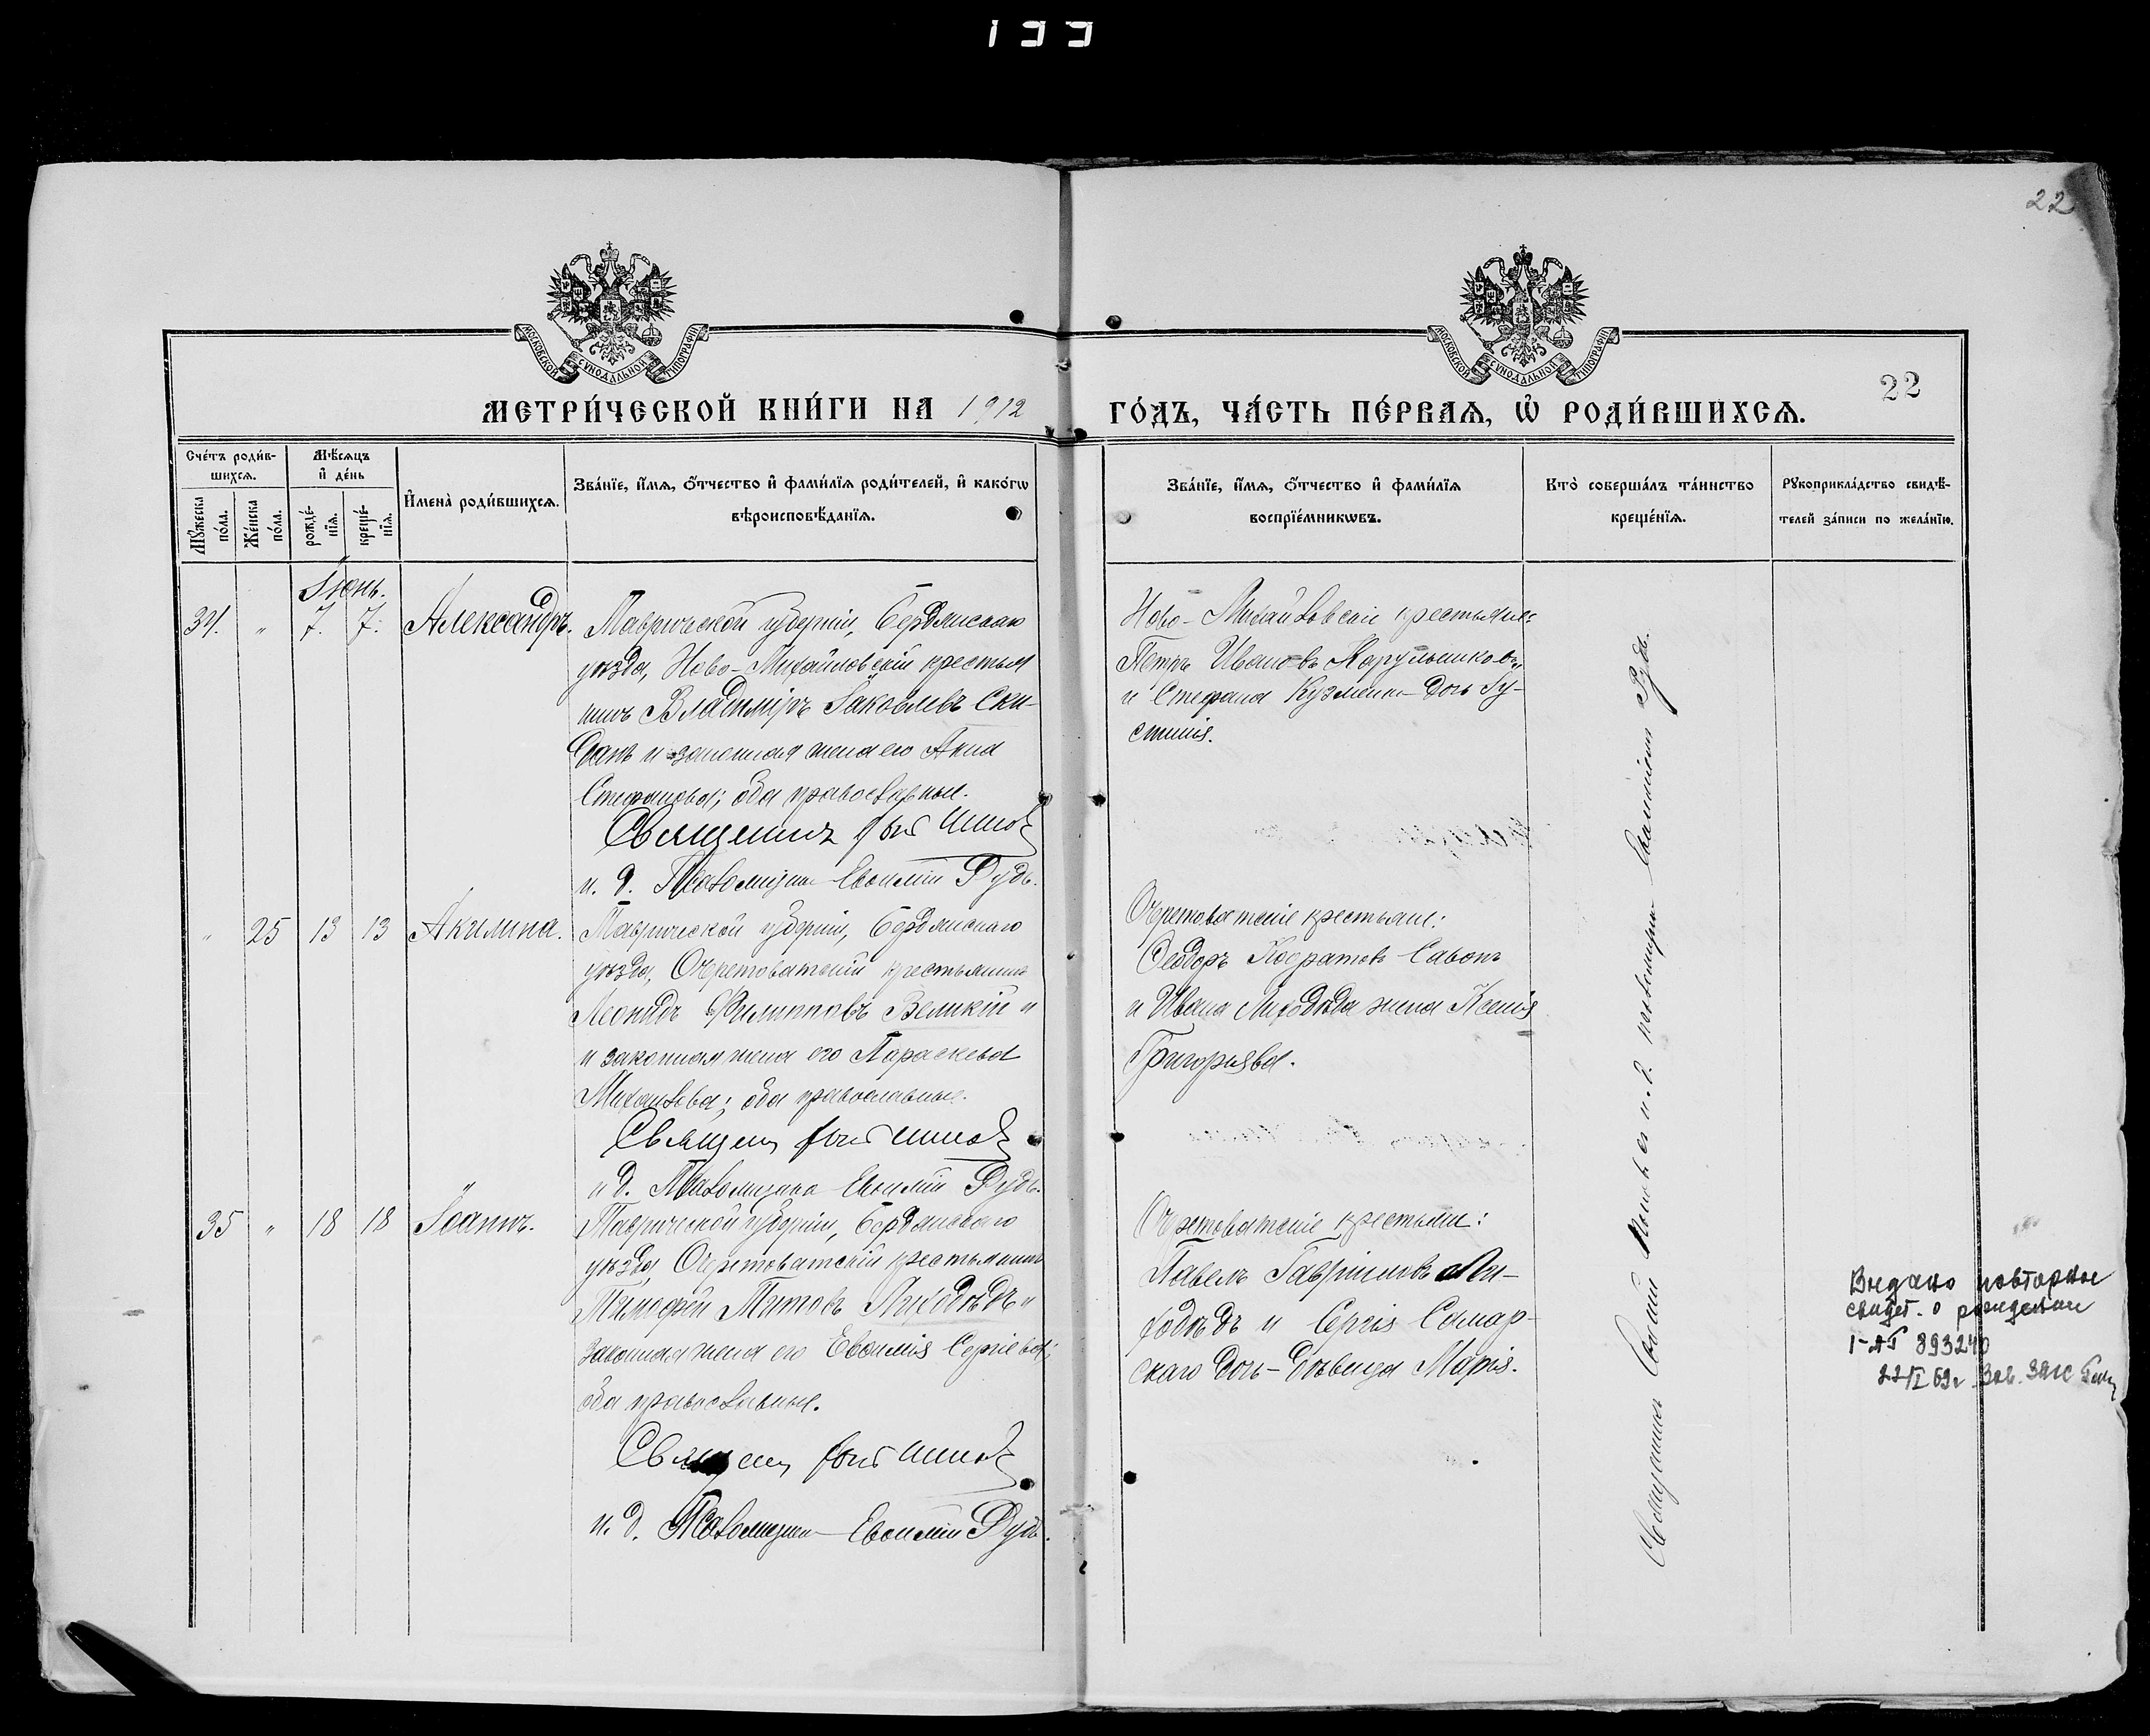 133
22
МОСКОВСКОЙ СѴНОДАЛЬНОЙ ТИПОГРАФІИ
МОСКОВСКОЙ СѴНОДАЛЬНОЙ ТИПОГРАФІИ
22
МЕТРИ́ЧЕСКОЙ КНИ́ГИ НА 1912
ГО́ДЪ, ЧА́СТЬ ПЕ́РВАѦ, Ѡ҆ РОДИ́ВШИХСѦ.
Сче́тъ роди́в-
шихсѧ.
Мꙋ́жеска
по́ла.
Же́нска
по́ла.
Мѣ́сѧцъ
и҆ де́нь
рожде́-
нїѧ.
креще́-
нїѧ.
И҆мена̀ роди́вшихсѧ.
Зва́нїе, и҆́мѧ, ѻ҆́тчество и҆ фами́лїѧ роди́телей, и҆ како́гѡ
вѣроисповѣ́данїѧ.
Зва́нїе, и҆́мѧ, ѻ҆́тчество и҆ фами́лїѧ
воспрїе́мникѡвъ.
Кто̀ соверша́лъ та́инство
креще́нїѧ.
Рꙋкоприкла́дство свидѣ́-
телей за́писи по жела́нїю.
Іюнь.
34. " 7. 7. Александръ.
Таврической губерніи, Бердянскаго
уѣзда, Ново-Михайловскій крестья
нинъ Владиміръ Іаковлевъ Ски-
банъ и законная жена его Анна
Стефанова; оба православные.
Священникъ
и. д. Псаломщика Евѳимій Рудь.
Ново-Михайловскіе крестьяне:
Петръ Ивановъ
и Стефана Кузменко дочь Іу-
стинія.
" 25 13 13 Акилина.
Таврической губерніи, Бердянскаго
уѣзда, Очеретоватскій крестьянинъ
Леонидъ Филипповъ Великій и
и законная жена его Параскева
Михаилова; оба православные.
Священ
и д. Псаломщика Евѳимій Рудь.
Очеретоватскіе крестьяне:
Ѳеодоръ Кодратовъ Савонъ
и Ивана Лиходѣда жена Ксенія
Григорьева.
35 " 18 18 Іоаннъ.
Таврической губерніи, Бердянскаго
уѣзда, Очеретоватскій крестьянинъ
Тимофей Титовъ Лиходѣдъ и
законная жена его Евѳимія Сергіева;
оба православные.
Священ
и. д. Псаломщика Евѳимій Рудь.
Очеретоватскіе крестьяне:
Павелъ Гавріиловъ Ли-
ходѣдъ и Сергія Самар-
скаго дочь-дѣвица Марія.
Священникъ съ и. д. псаломщика Евѳиміемъ Рудь.
Выдано повторное
свидет. о рождении
893240
22/I 69г. Зав. ЗАГС